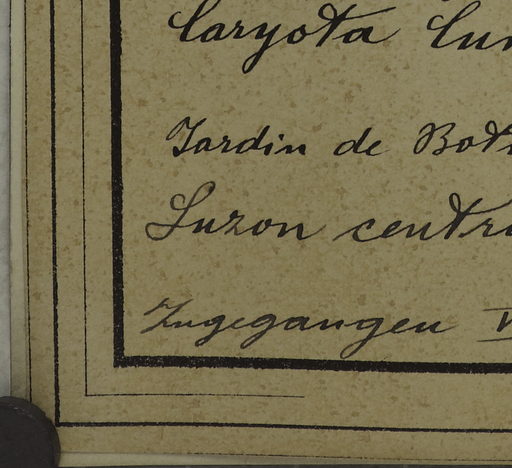 Caryota Cum
Jardin de Bota
Luzon centra
Zugegangen V